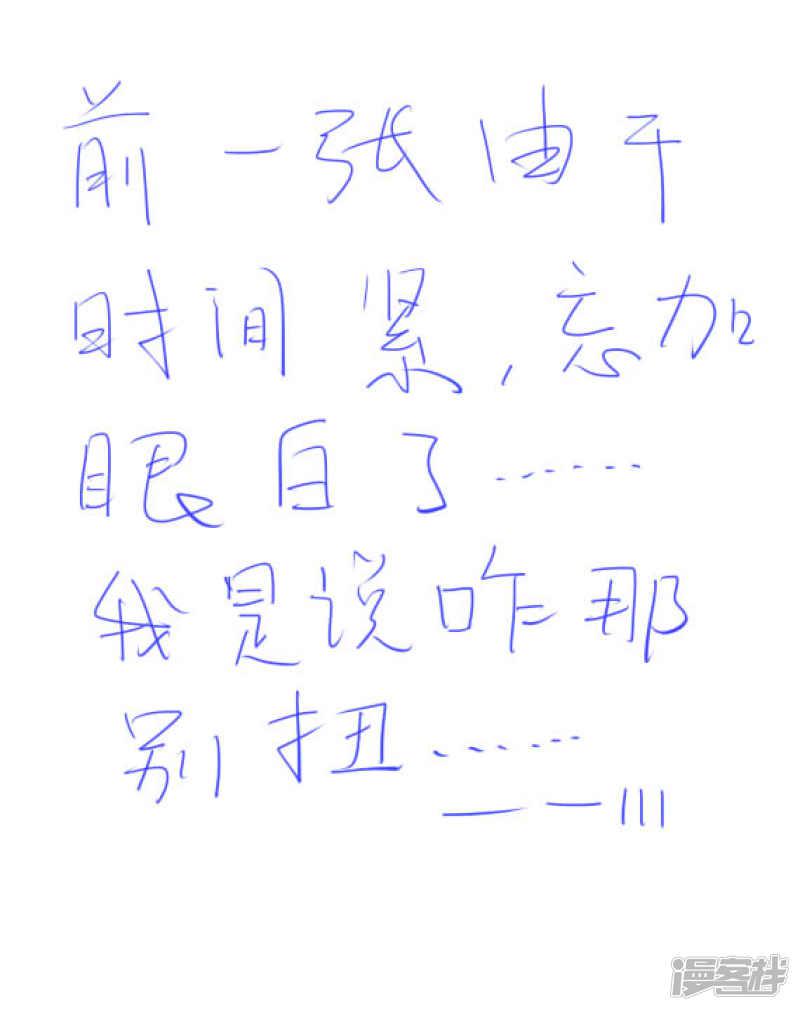 前一张由于
时间紧,忘加
眼白了……
我是说咋那
别扭……
——|||
漫客栈